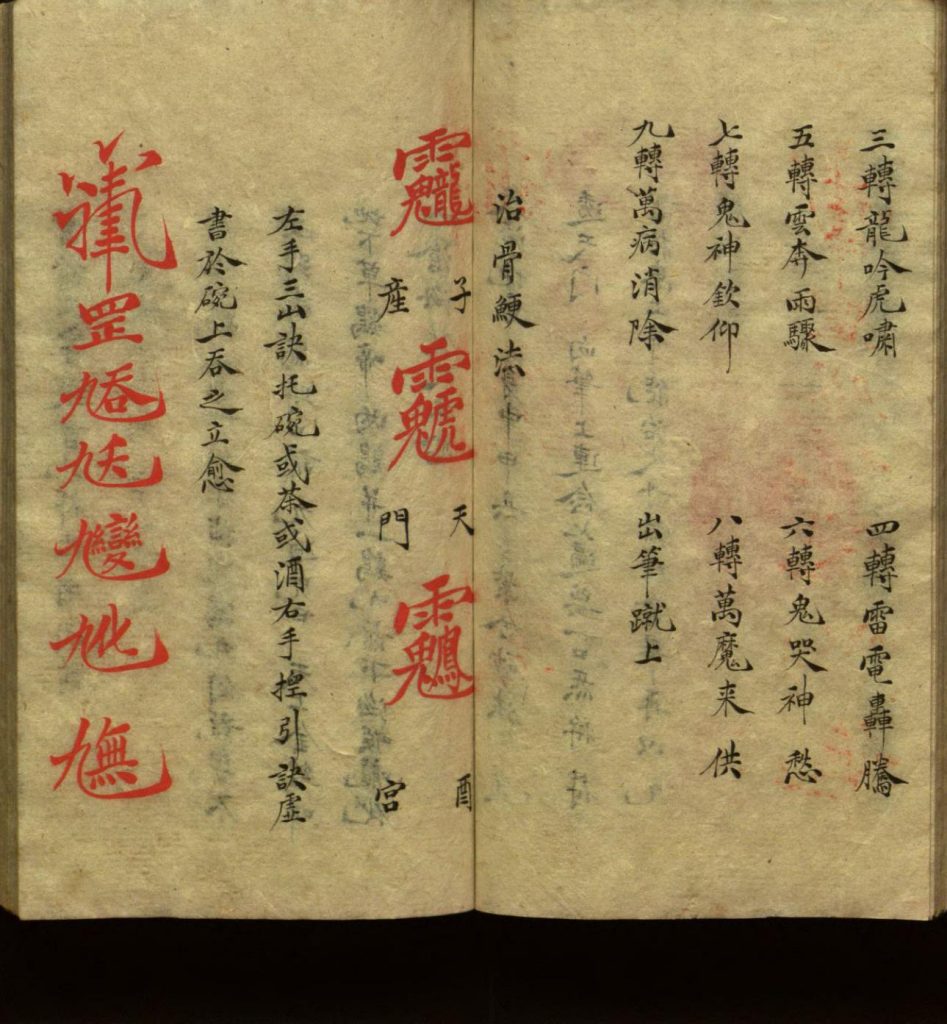 三轉龍吟虎嘯 四轉雷電轟騰
五轉雲奔雨驟 六轉鬼哭神愁
七轉鬼神欽仰 八轉萬魔来供
九轉萬病消除 出筆蹴上
治骨鯁法
子 天 酉
產 門 宮
左手三山訣托碗或茶或酒右手揑引訣虛
書於碗上吞之立愈
罡